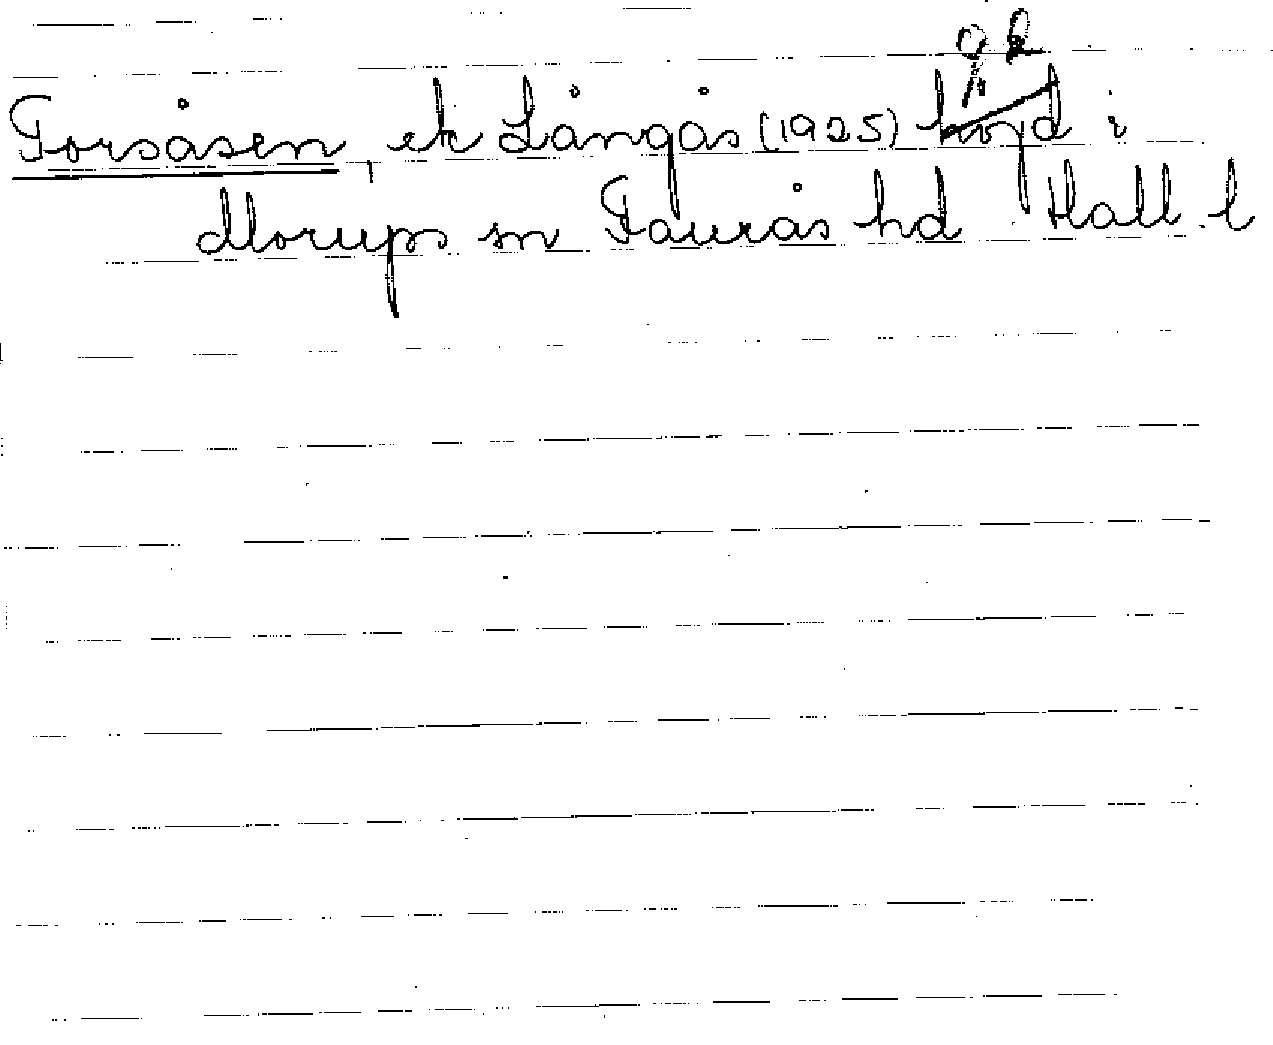 Torsåsen, ek Långås (1925) höjd i
Morups sn Faurås hd Hall l